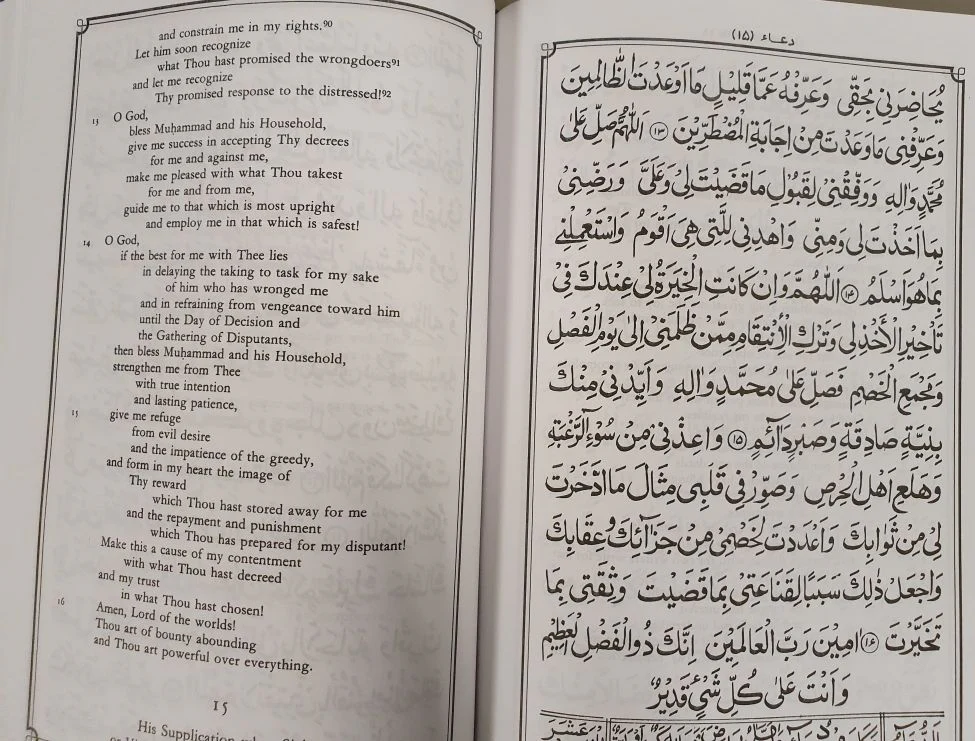 and constrain me in my rights.90
Let him soon recognize
what Thou hast promised the wrongdoers91
and let me recognize
Thy promised response to the distressed!92
13 O God,
bless Muḥammad and his Household,
give me success in accepting Thy decrees
for me and against me,
make me pleased with what Thou takest
for me and from me,
guide me to that which is most upright
and employ me in that which is safest!
14 O God,
if the best for me with Thee lies
in delaying the taking to task for my sake
of him who has wronged me
and in refraining from vengeance toward him
until the Day of Decision and
the Gathering of Disputants,
then bless Muḥammad and his Household,
strengthen me from Thee
with true intention
and lasting patience,
15 give me refuge
from evil desire
and the impatience of the greedy,
and form in my heart the image of
Thy reward
which Thou hast stored away for me
and the repayment and punishment
which Thou has prepared for my disputant!
Make this a cause of my contentment
with what Thou hast decreed
and my trust
in what Thou hast chosen!
16 Amen, Lord of the worlds!
Thou art of bounty abounding
and Thou art powerful over everything.
15
His Supplication
دعاء (۱۵)
يُحَاضِرَنِي بِحَقِّي وَعَرِّفْهُ عَمَّا قَلِيْلٍ مَا اَوْعَدْتَ الظَّالِمِينَ
وَعَرِّفْنِي مَا وَعَدْتَ مِنْ اِجَابَةِ الْمُضْطَرِّيْنَ ﴿۱۳﴾ اَللّٰهُمَّ صَلِّ عَلٰى
مُحَمَّدٍ وَاٰلِهِ وَوَفِّقْنِي لِقَبُولِ مَا قَضَيْتَ لِي وَعَلَيَّ وَرَضِّنِي
بِمَا اَخَذْتَ لِي وَمِنِّي وَاهْدِنِي لِلَّتِي هِيَ اَقْوَمُ وَاسْتَعْمِلْنِي
بِمَا هُوَ اَسْلَمُ ﴿۱۴﴾ اَللّٰهُمَّ وَاِنْ كَانَتِ الْخِيَرَةُ لِي عِنْدَكَ فِي
تَأْخِيْرِ الْاَخْذِ لِي وَتَرْكِ الْاِنْتِقَامِ مِمَّنْ ظَلَمَنِي اِلٰى يَوْمِ الْفَصْلِ
وَمَجْمَعِ الْخَصْمِ فَصَلِّ عَلٰى مُحَمَّدٍ وَاٰلِهِ وَاَيِّدْنِي مِنْكَ
بِنِيَّةٍ صَادِقَةٍ وَصَبْرٍ دَائِمٍ ﴿۱۵﴾ وَاَعِذْنِي مِنْ سُوْءِ الرَّغْبَةِ
وَهَلَعِ اَهْلِ الْحِرْصِ وَصَوِّرْ فِي قَلْبِي مِثَالَ مَا ادَّخَرْتَ
لِي مِنْ ثَوَابِكَ وَاَعْدَدْتَ لِخَصْمِي مِنْ جَزَائِكَ وَعِقَابِكَ
وَاجْعَلْ ذٰلِكَ سَبَبًا لِقَنَاعَتِي بِمَا قَضَيْتَ وَثِقَتِي بِمَا
تَخَيَّرْتَ ﴿۱۶﴾ اٰمِيْنَ رَبَّ الْعَالَمِيْنَ اِنَّكَ ذُو الْفَضْلِ الْعَظِيْمِ
وَاَنْتَ عَلٰى كُلِّ شَيْءٍ قَدِيْرٌ